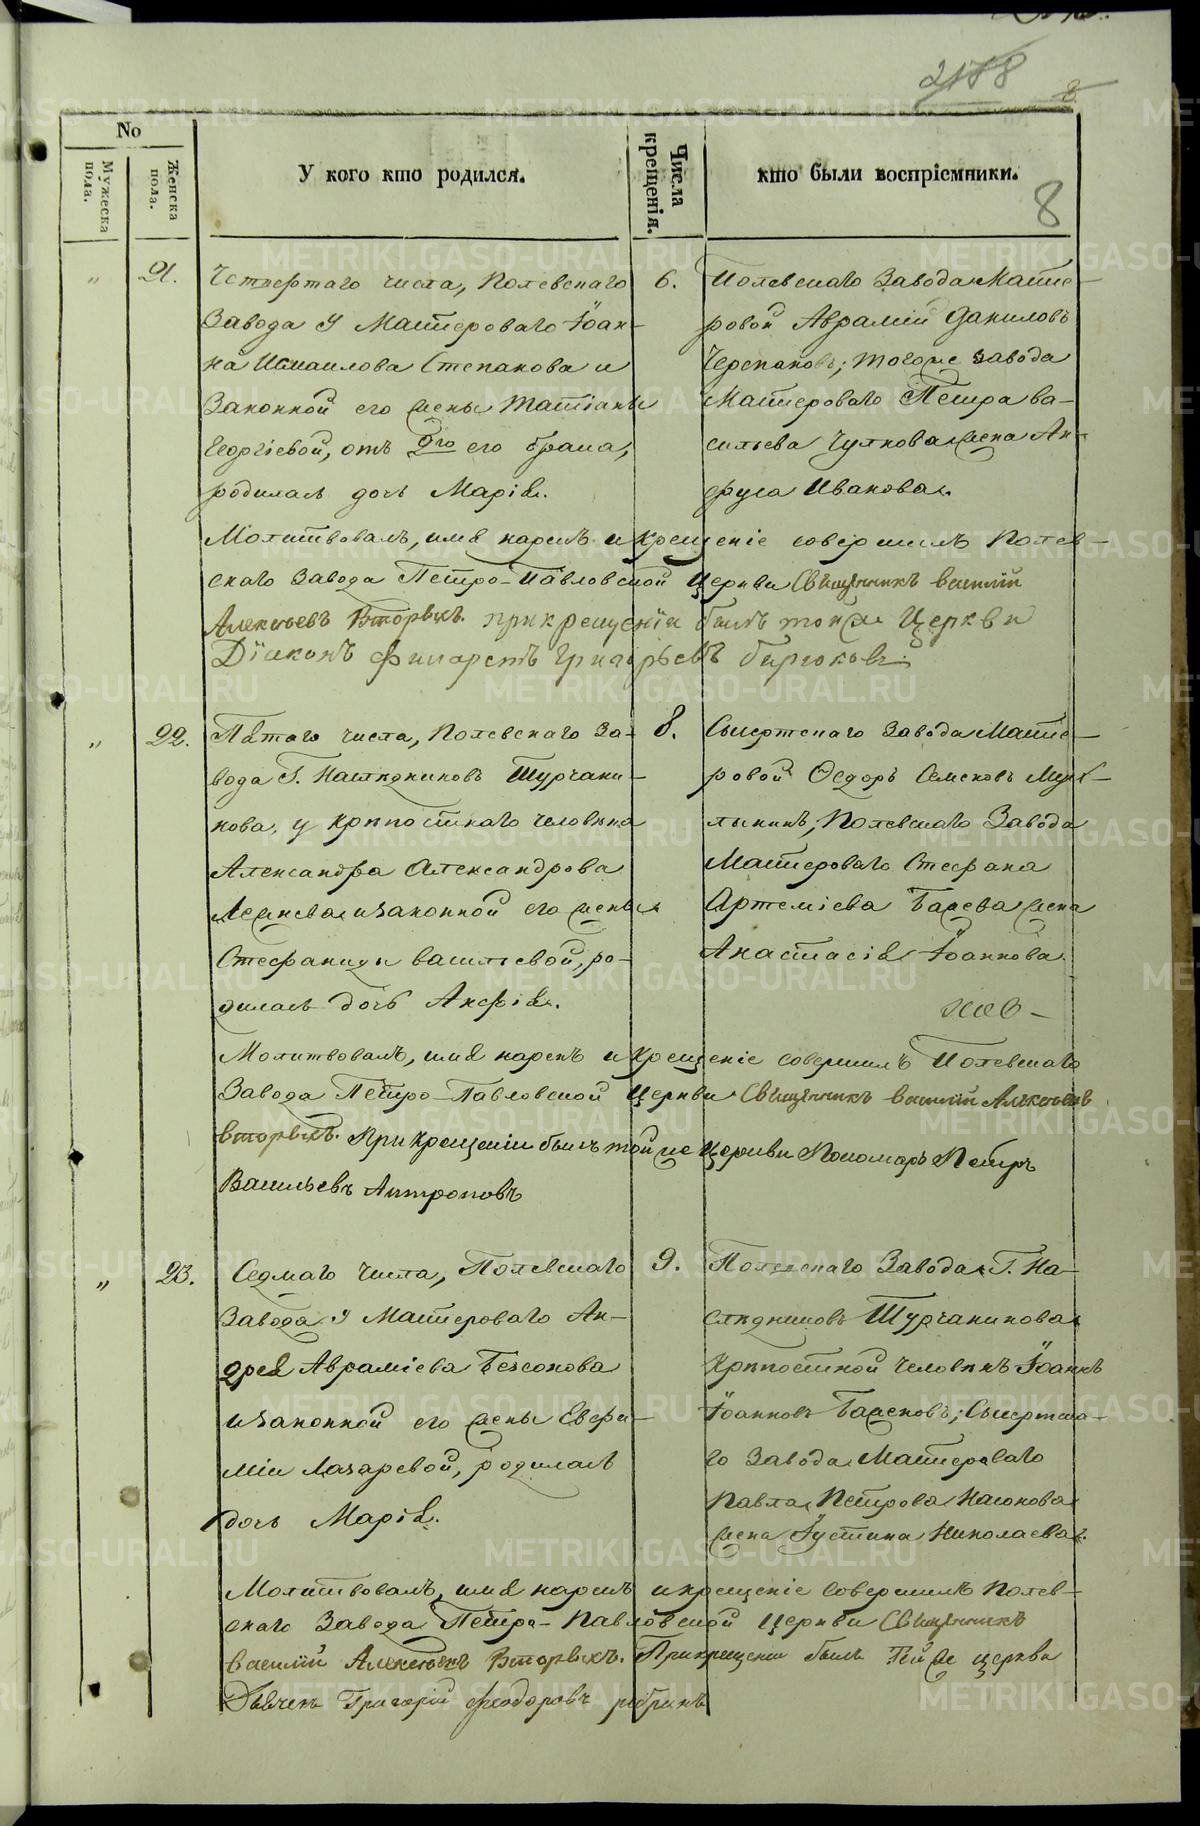 2188
8
No
Мужеска пола.
Женска пола.
У кого кто родился.
Числа крещенія.
кто были воспріемники.
8
" 21.
Четвертаго числа, Полевскаго
Завода у Мастероваго Іоан-
на Измаилова Степанова и
Законной его жены Татіаны
Георгіевой, отъ 2го его брака,
родилась дочь Марія.
6.
Полевскаго Завода Масте-
ровой Аврамій Даниловъ
Черепановъ; тогоже завода
Мастероваго Петра Ва-
сильева Чулкова жена Ан-
фуса Иванова.
Молитвовалъ, имя нарекъ и крещеніе совершилъ Полев-
скаго Завода Петро-Павловской Церкви Священникъ Василій
Алексѣевъ Вторыхъ. при крещеніи былъ тойже Церкви
Діаконъ Филаретъ Григорьевъ Бирюковъ
" 22.
Пятаго числа, Полевскаго За-
вода Г. Наслѣдниковъ Турчани-
нова, у крѣпостнаго человѣка
Александра Александрова
и законной его жены
Стефаниды Васильевой, ро-
дилась дочь Анфія.
8.
Сысертскаго Завода Масте-
ровой Ѳедоръ Семеновъ
Полевскаго Завода
Мастероваго Стефана
Артеміева Бажева жена
Анастасія Іоаннова.
Молитвовалъ, имя нарекъ и крещеніе совершилъ Полевскаго
Завода Петро-Павловской Церкви Священникъ Василій Алексѣевъ
Вторыхъ. При крещеніи былъ тойже Церкви Пономарь Петръ
Васильевъ Антроповъ
" 23.
Седмаго числа, Полевскаго
Завода у Мастероваго Ан-
дрея Авраміева Безсонова
и законной его жены Евфи-
міи Лазаревой, родилась
дочь Марія.
9.
Полевскаго Завода Г. На-
слѣдниковъ Турчанинова
крѣпостной человѣкъ Іоаннъ
Іоанновъ Баженовъ; Сысертска-
го Завода Мастероваго
Павла Петрова Насонова
жена Іустина Николаева.
Молитвовалъ, имя нарекъ и крещеніе совершилъ Полев-
скаго Завода Петро-Павловской Церкви Священникъ
Василій Алексѣевъ Вторыхъ. При крещеніи былъ Тойже церкви
Дьячекъ Григорій Феодоровъ
METRIKI.GASO-URAL.RU